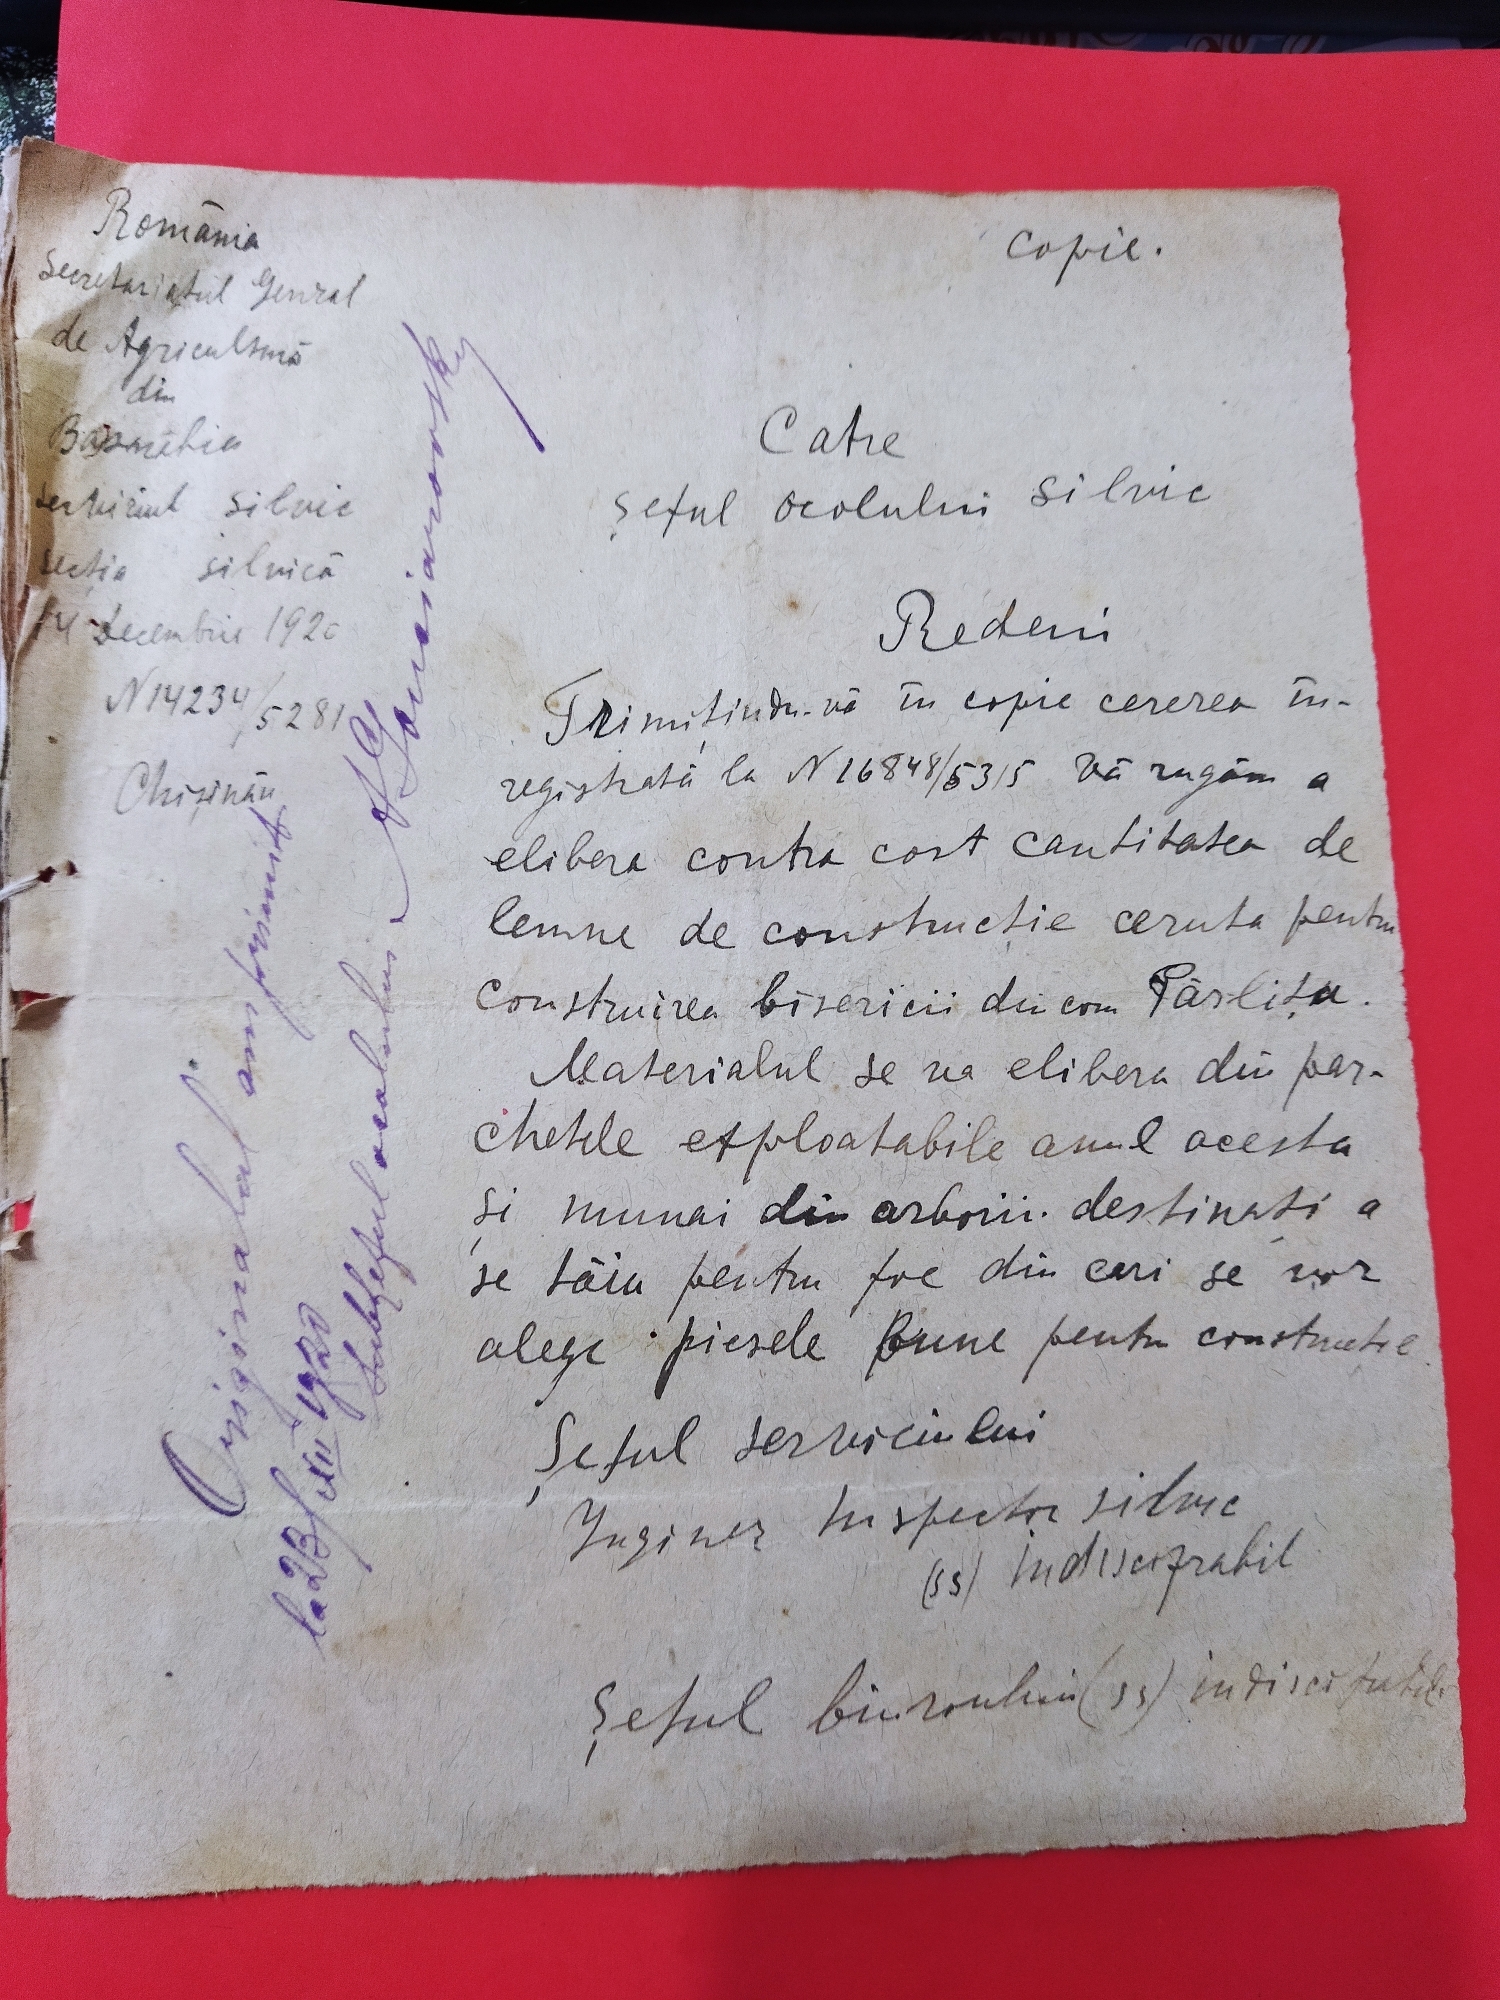 România
Secretariatul Genral
de Agricultură
din
Basarabia
serviciul silvic
secția silvică
14 Decembrie 1920
N 14234/5281
Chișinău
Copie.
Catre
șeful ocolului silvic
Redeni
Trimițindu-vă în copie cererea în-
registrată la N 16848/5315 vă rugăm a
elibera contra cost cantitatea de
lemne de construcție ceruta pentru
construirea bisericii din com Pârlița.
Materialul se va elibera din par-
chetele exploatabile anul acesta
și numai din arborii destinați a
se tăia pentru foc din cari se vor
alege piesele bune pentru construcție.
Șeful serviciului
Inginer Inspector silvic
(ss) indiscifrabil
Șeful biuroului (ss) indiscifrabil
Originalul am primit
la 23/XII 1920
Subșeful ocolului